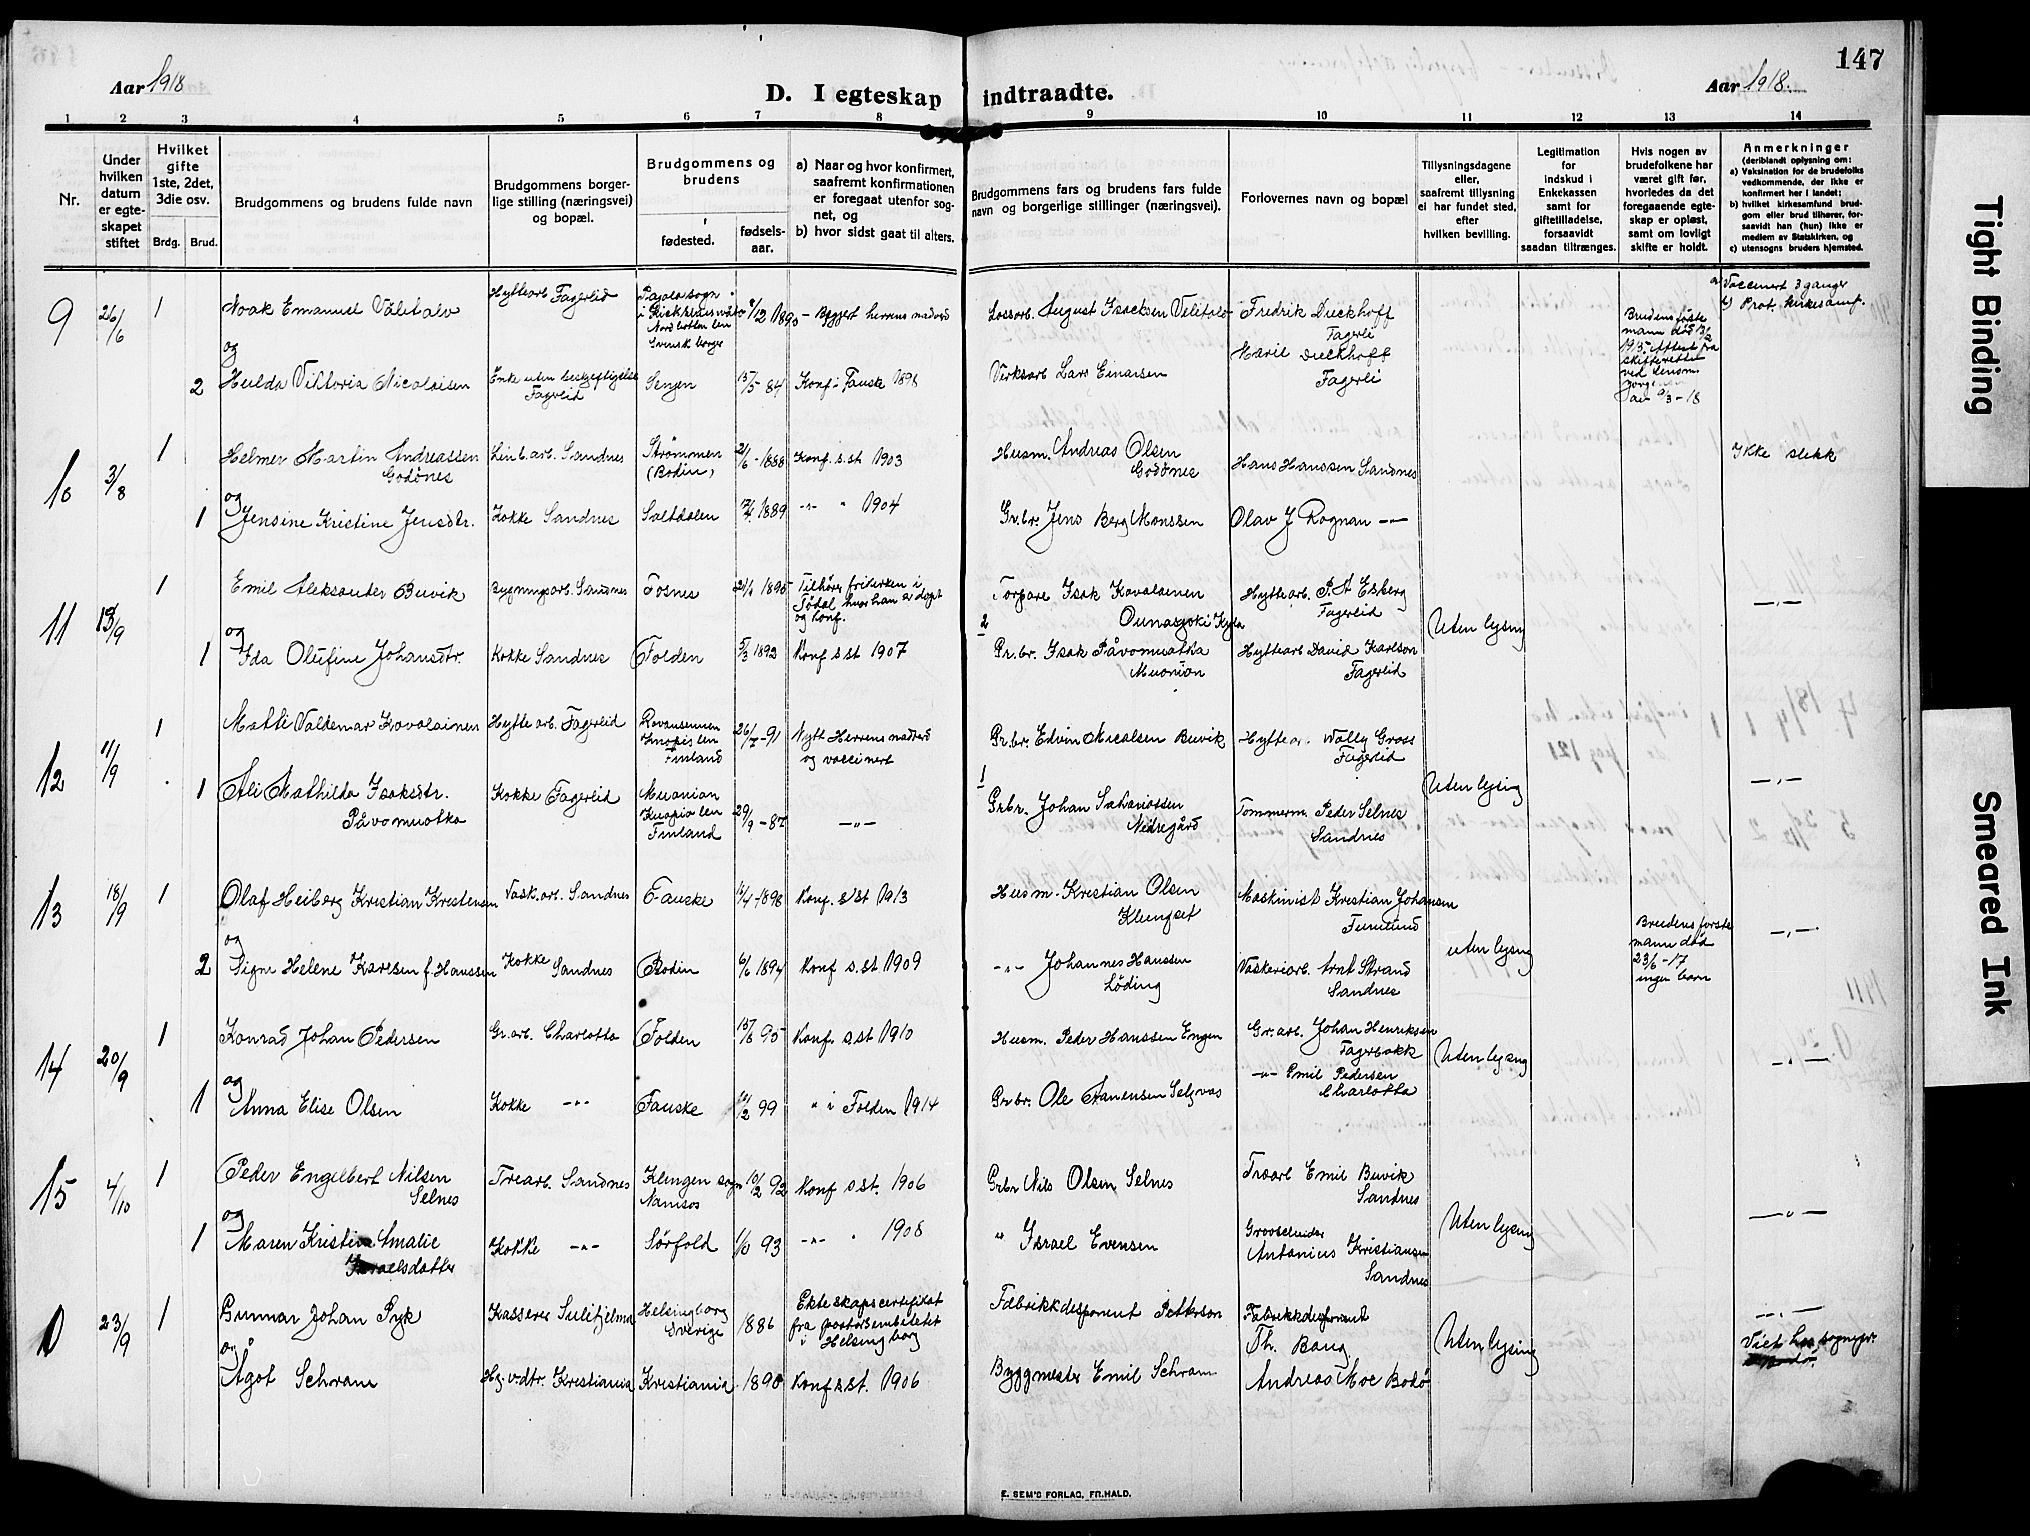 147
Aar 1918
D. I egteskap indtraadte.
Aar 1918.
1 2 3 4 5 6 7 8 9 10 11 12 13 14
Nr.
Under hvilken datum er egteskapet stiftet
Hvilket gifte 1ste, 2det, 3die osv.
Brdg. Brud.
Brudgommens og brudens fulde navn
Brudgommens borgerlige stilling (næringsvei) og bopæl.
Brudgommens og brudens
fødested.
fødselsaar.
a) Naar og hvor konfirmert, saafremt konfirmationen er foregaat utenfor sognet, og
b) hvor sidst gaat til alters.
Brudgommens fars og brudens fars fulde navn og borgerlige stillinger (næringsvei).
Forlovernes navn og bopæl
Tillysningsdagene eller, saafremt tillysning ei har fundet sted, efter hvilken bevilling.
Legitimation for indskud i Enkekassen samt for giftetilladelse, forsaavidt saadan tiltrænges.
Hvis nogen av brudefolkene har været gift før, hvorledes da det foregaaende egteskap er opløst, samt om lovligt skifte er holdt.
Anmerkninger
(deriblandt oplysning om:
a) Vaksination for de brudefolks vedkommende, der ikke er konfirmert her i landet;
b) hvilket kirkesamfund brudgom eller brud tilhører, forsaavidt han (hun) ikke er medlem av Statskirken, og
c) utensogns bruders hjemsted.
9 26/6 1 Noak Emanuel Välitalo
Hyttearb Fagerlid
Pajala sogn
Norbotten len
Svensk borger
/12 1890 - Begjert herrens nadverd
Lossarb. August Isacksen Velitalo
Fredrik Dieckhoff
Fagerli
Marie Dieckhoff
Fagerli
Brudens første mann død
1915. Attest fra skifteretten ved lensm.
a) Vaccinert 3 ganger
b) Prot. kirkesamf.
og
2 Hulda Viktoria Nicolaisen
Enke uten beskjeftigelse
Fagerlid
Senjen 15/5 84 Konf i Fauske 1898
Virksarb Lars Einarsen
10 3/8 1 Helmer Martin Andreassen
Godönes
Linb. arb. Sandnes Strömmen (Bodin) 21/6 - 1888 Konf. s. st 1903
Husm. Andreas Olsen
Godönes
Hans Hanssen Sandnes
Ikke slekt
og
1 Jensine Kristine Jensdtr.
Kokke Sandnes Saltdalen 17/4 1889 -"- " 1904
Gr.br. Jens Berg Monssen
Olav J Rognan -"-
11 13/9 1 Emil Aleksander Buvik
Bygningsarb. Sandnes Fosnes 21/4 1895
Tilhører frikirken i
hvor han er døpt
og konf.
Torpare Isak Kovalainen
Hyttearb. P. A Esberg
Fagerlid
Uten lysng
-"-
og
1 Ida Olufine Johansdtr.
Kokke Sandnes Folden 5/3 1892 Konf s st 1907
2
Gr.br. Isak Påvomuotka
Muonion
Hyttearb David Karlson
Fagerlid
12 11/9 1 Matti Valdemar Kovalainen
Hytte arb. Fagerlid
Finland
26/7 -91
Nytt Herrens nadverd
og vaccinert
Gr.br. Edvin Micalsen Buvik
Hyttear. Wally Gross
Fagerlid
Uten lysng
-"-
1 Ali Mathilda Isaksdtr.
Påvomuotka
Kokke Fagerlid
Muonian
Kuopio len
Finland
29/9 - 87 -"-
1
Grbr. Johan Sakariassen
Nedregård
Tommerm. Peder Selnes
Sandnes
13 18/9 1 Olaf Heiberg Kristian Kristensen
Vask. arb. Sandnes Fauske 12/4 -1898 Konf. s st 1913
Husm. Kristian Olsen
Klungset
Maskinist Kristian Johansen
Furulund
uten lysng
Brudens første
mann død
23/6 -17
ingen barn
-"-
og
2 Signe Helene Karlsen f. Hanssen
Kokke Sandnes Bodin 6/6 1894 Konf s. st 1909
-"- Johannes Hanssen
Löding
Vaskeriarb. Arnt Strand
Sandnes
14 20/9 1 Konrad Johan Pedersen
Gr. arb. Charlotta Folden 15/6 95 Konf. s. st 1910
Husm. Peder Hanssen Engen
Gr. arb. Johan Henriksen
Fagerbakk
Uten lysng
-"-
og
1 Anna Elise Olsen
Kokke -"- Fauske 12/2 99 " i Folden 1914
Gr br. Ole
-"- Emil Pedersen
Charlotta
15 4/10 1 Peder Engelbert Nilsen
Selnes
Trearb. Sandnes Klingen sogn
Namsos
10/2 92 Konf s. st. 1906
Grbr Nils Olsen Selnes
Træarb Emil Buvik
Sandnes
Uten lysng
-"-
og
1 Maren Kristina Amalie
Israelsdatter
Kokke -"- Sørfold 1/10 93 -"- " 1908
" Israel Evensen
Antonius Kristiansen
Sandnes
23/9 1 Gunnar Johan Pyk
Kasserer Sulitjelma Helsingborg
Sverige
1886
Ekteskapscertifikat
fra pastorsembetet
i Helsingborg
Fabrikkdisponent Petterson
Fabrikkdisponent
Th. Bang
Uten lysing
-"-
og
Ågot Schram
Kristiania Kristiania 1890 Konf s. st. 1906
Byggmester Emil Schram
Andreas Moe Bodö
E. SEM'S FORLAG, FR.HALD.
Tight Binding
Smeared Ink